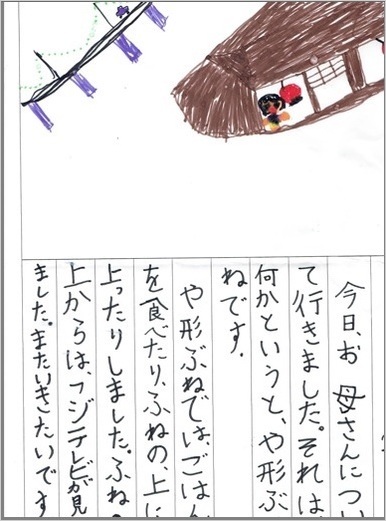 今日、お母さんについ
て行きました。それは
何かというと、や形ぶ
ねです。
や形ぶねでは、ごはん
を食べたり、ふねの、上に
上ったりしました。ふね。
上からは、フジテレビが見
ました。またいきたいです